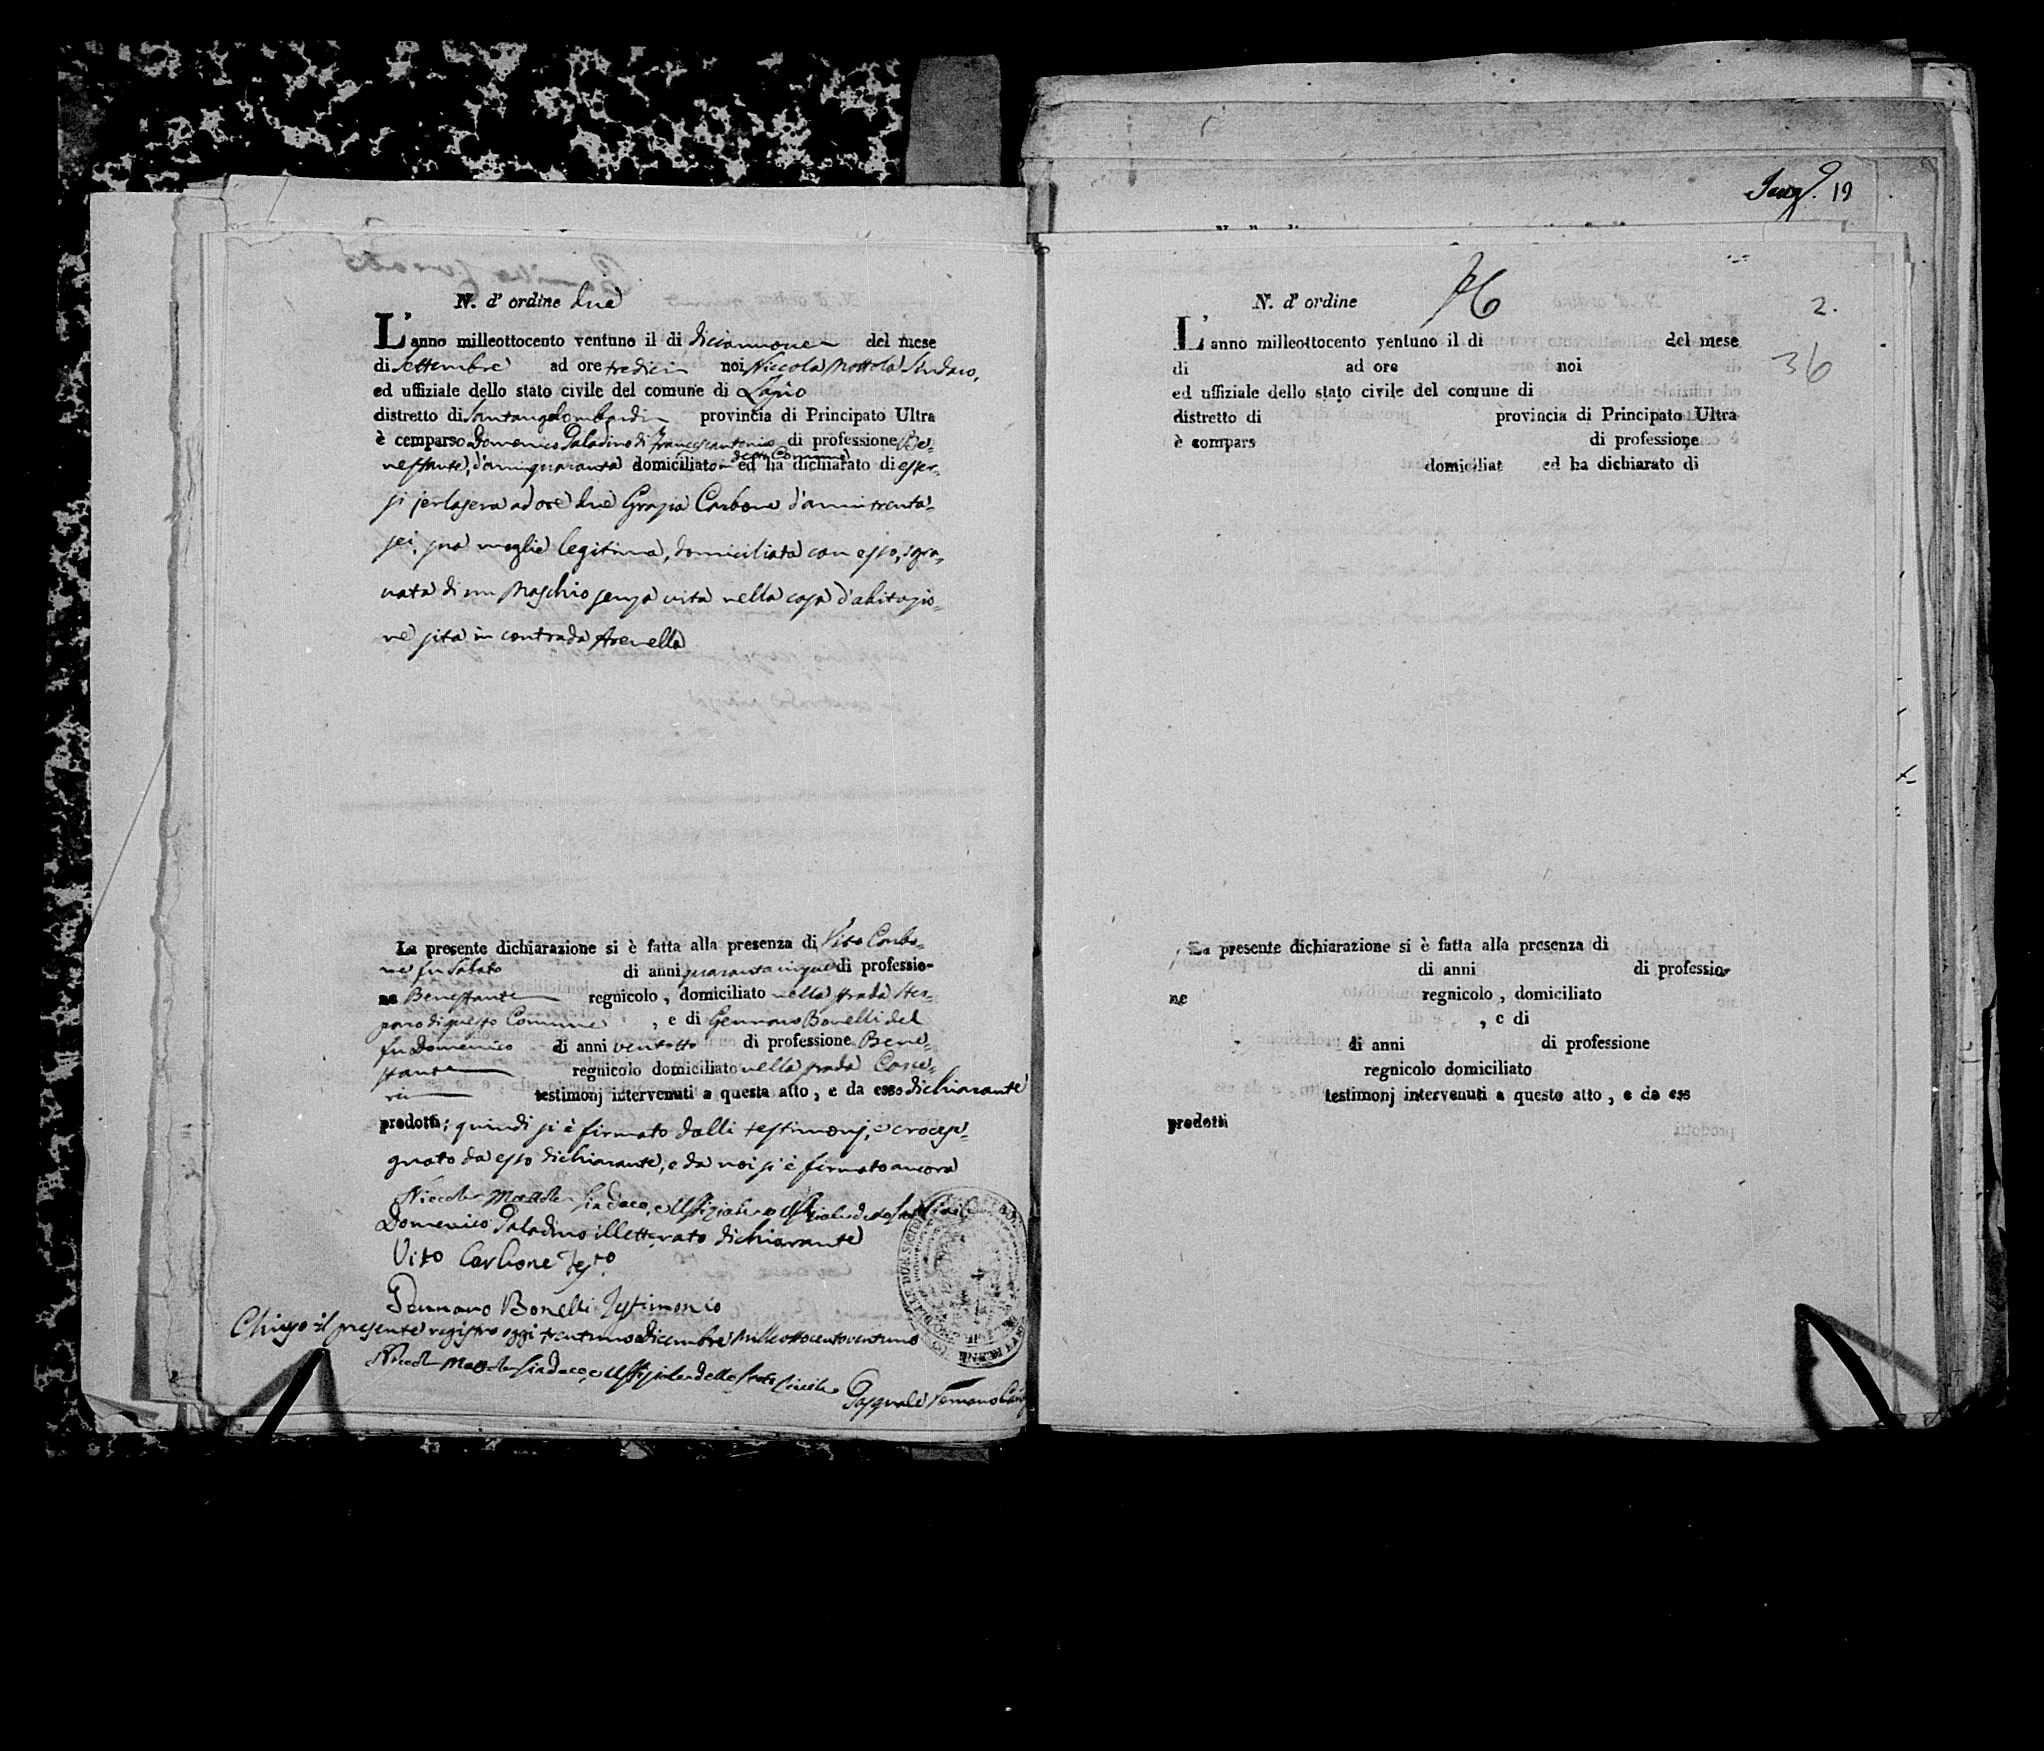 N. d' ordine due
L'anno milleottocento ventuno il di diciannove del mese
di Settembre ad ore tredici noi Niccola Mottola Sindaco,
ed uffiziale dello stato civile del comune di Lapio
distretto di Santangelombardi provincia di Principato Ultra
è comparso Domenico Paladino di Francescantonio di professione Be-
nestante, d'anni quaranta domiciliato in detto Comune ed ha dichiarato di esser-
si jerlasera ad ore due Grazia Carbone d'anni trenta-
sei, sua moglie legitima, domiciliata con esso, sgra-
vata di un Maschio senza vita nella casa d'abitazio-
ne sita in contrada Arenella
La presente dichiarazione si è fatta alla presenza di Vito Carbo-
ne fu Sabato di anni quarantacinque di professio-
ne Benestante regnicolo, domiciliato nella strada
di questo Comune, e di Gennaro Bonelli del
fu Domenico di anni ventotto di professione Bene-
stante regnicolo domiciliato nella strada
testimonj intervenuti a questa atto, e da esso dichiarante
prodotti; quindi si è firmato dalli testimonj, crocese-
gnato da esso dichiarante, e da noi si è firmato ancora
Niccola Mottola Sindaco, e Uffiziale dello Stato Civile
Domenico Paladino illetterato dichiarante
Vito Carbone Tes.to
Gennaro Bonelli Testimonio
Chiuso il presente registro oggi trentuno Dicembre milleottocentoventuno
Niccola Mottola Sindaco, e Uffiziale dello Stato Civile
Pasquale
19
N. d' ordine
2.
L'anno milleottocento ventuno il di del mese
36
di ad ore noi
ed uffiziale dello stato civile del comune di
distretto di provincia di Principato Ultra
è compars di professione
domiciliat ed ha dichiarato di
La presente dichiarazione si è fatta alla presenza di
di anni di professio-
ne regnicolo, domiciliato
, e di
di anni di professione
regnicolo domiciliato
testimonj intervenuti a questo atto, e da ess
prodotti